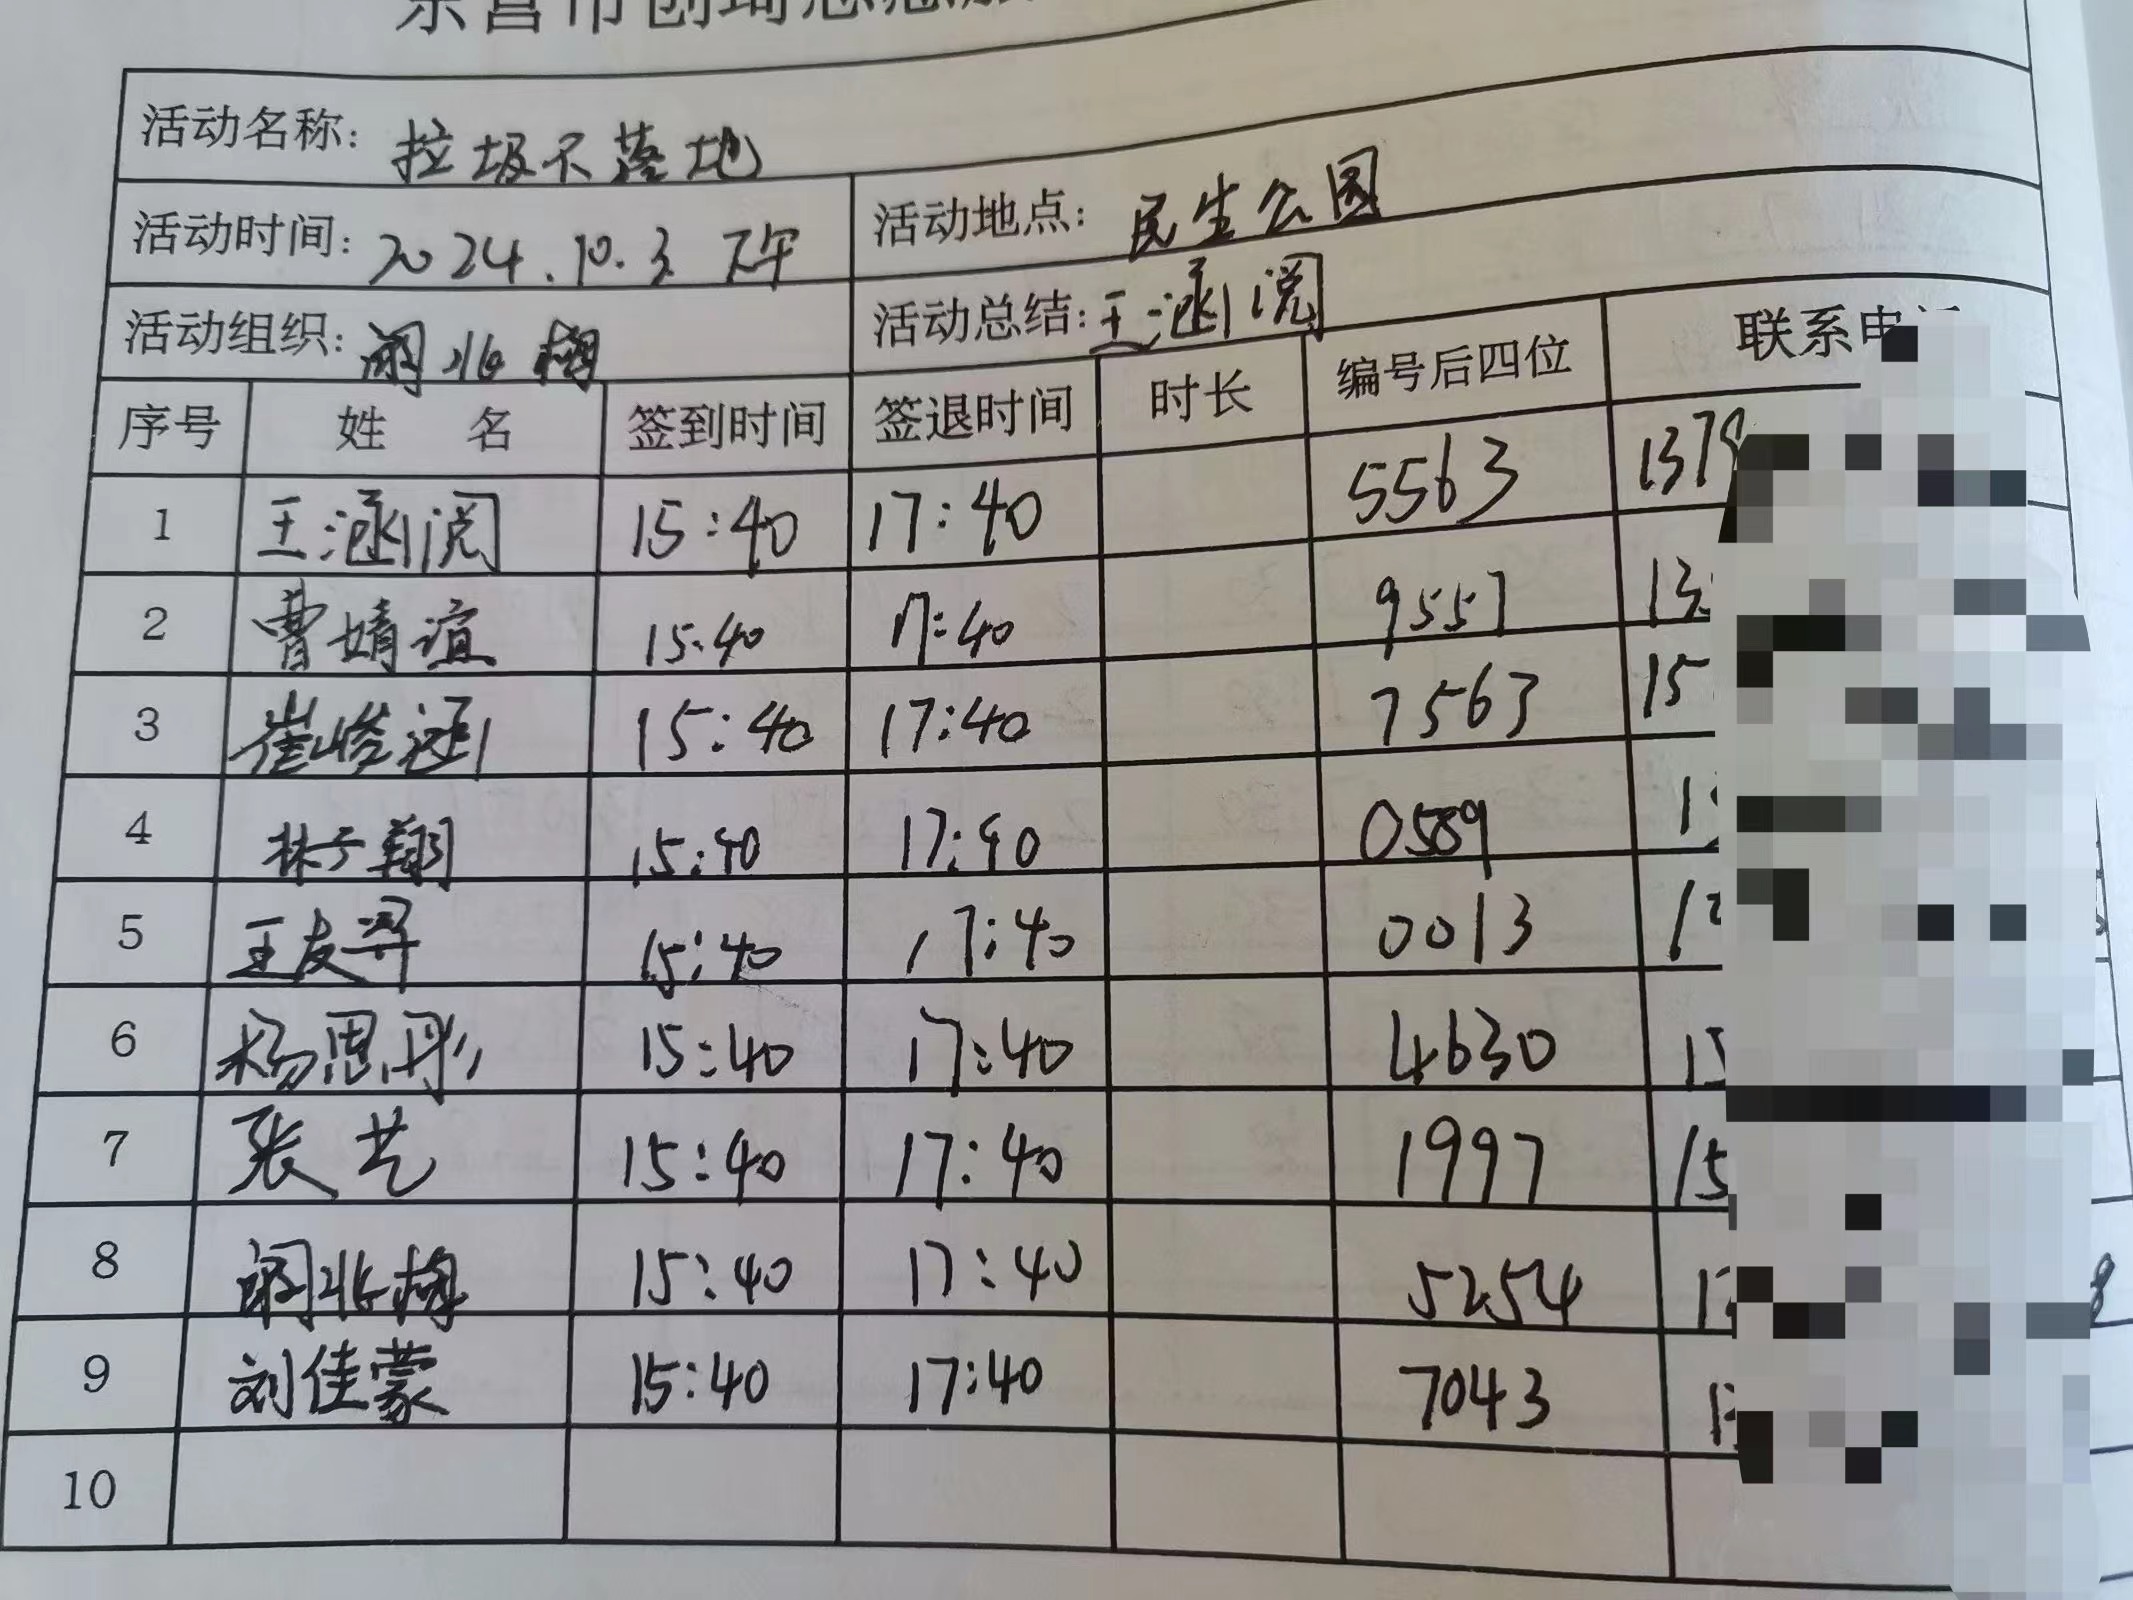 活动名称：垃圾不落地
活动时间：2024.10.3 下午 活动地点：民生公园
活动组织：阚兆梅 活动总结：王涵阅
序号 姓 名 签到时间 签退时间 时长 编号后四位 联系电
1 王涵阅 15:40 17:40 5563 137
2 曹婧谊 15:40 17:40 9557 13
3 崔峻涵 15:40 17:40 7563 15
4 林子翔 15:40 17:40 0589 1
5 王友 15:40 17:40 0013 1
6 杨思彤 15:40 17:40 4630 15
7 张艺 15:40 17:40 1997 15
8 阚兆梅 15:40 17:40 5254 1 8
9 刘佳蒙 15:40 17:40 7043 1
10